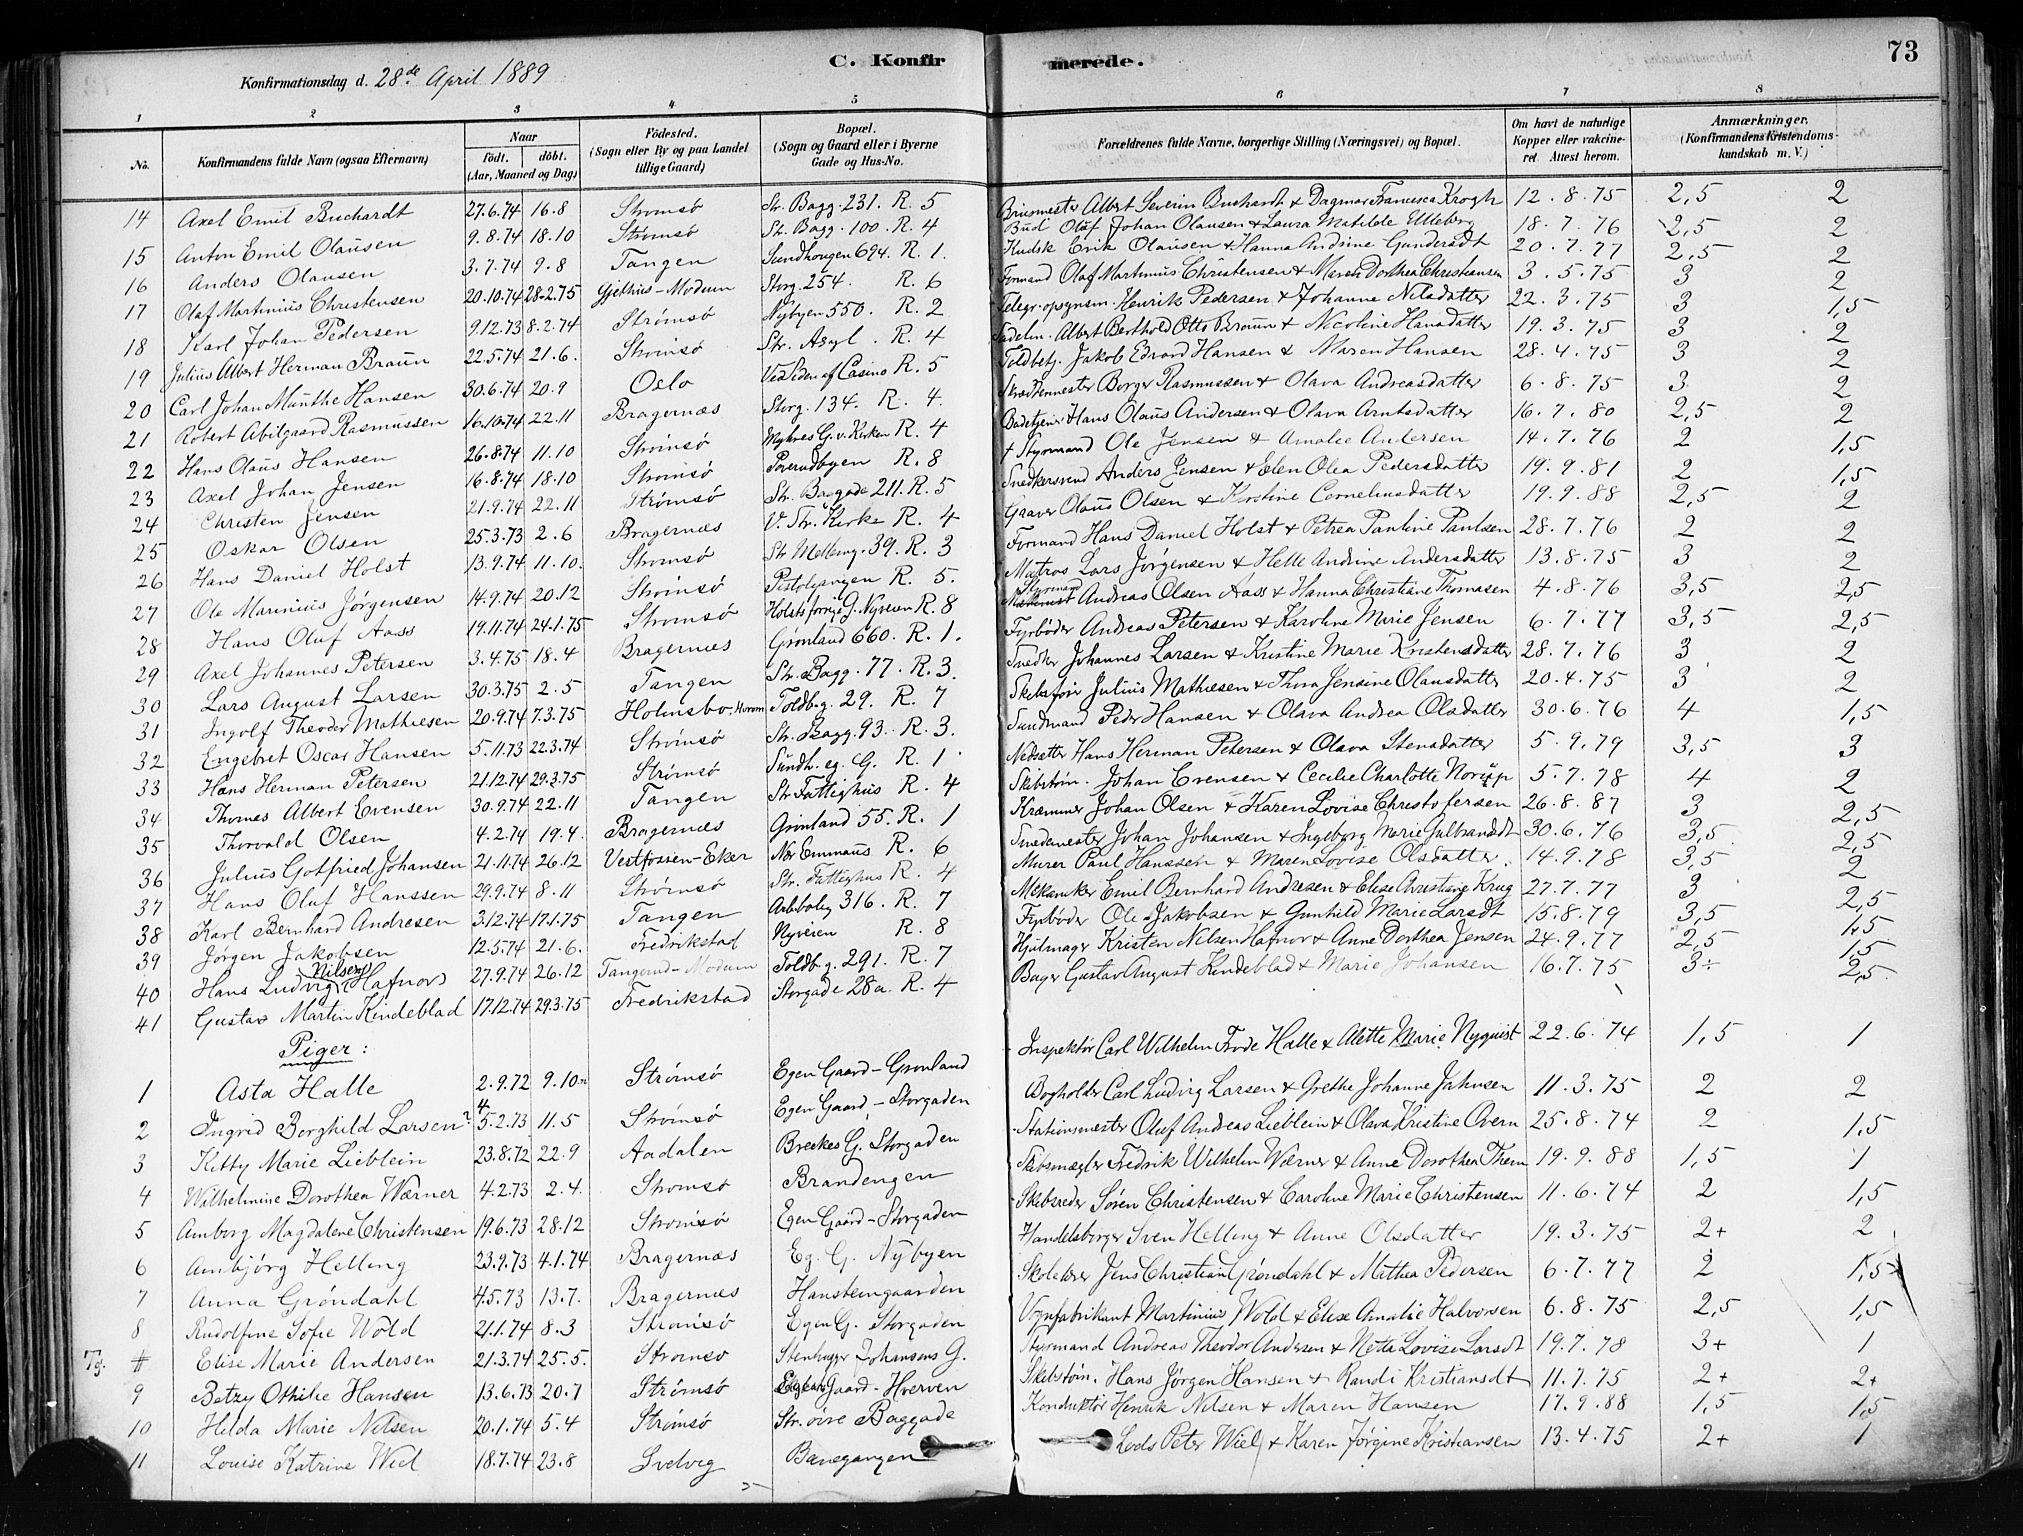 C. Konfirmerede.
73
Konfirmationsdag d. 28de April 1889
1 2 3 4 5 6 7 8
No. Konfirmandens fulde Navn (ogsaa Efternavn) Naar født. døbt. (Aar, Maaned og Dag) Fødested. (Sogn eller By og paa Landet tillige Gaard) Bopæl. (Sogn og Gaard eller i Byerne Gade og Hus-No. Forældrenes fulde Navne, borgerlige Stilling (Næringsvei) og Bopæl. Om havt de naturlige Kopper eller vakcineret. Attest herom. Anmærkninger. (Konfirmandens Kristendomskundskab m. V.)
14 Axel Emil Buchardt 27.6.74 16.8 Strømsø Str. Bagg. 231. R. 5 Albert Severin Buchardt & Dagmar Francesca Krogh 12.8.75 2,5 2
15 Anton Emil Olausen 9.8.74 18.10 Strømsø Str. Bagg. 100. R. 4 Bud Oluf Johan Olausen & Laura Matilde Elleberg 18.7.76 2,5 2
16 Anders Olausen 3.7.74 9.8 Tangen Sundhougen 694. R. 1. Kudsk Erik Olausen & Hanna Andrine Gundersdt 20.7.77 2,5 2
17 Olaf Martinius Christensen 20.10.74 28.2.75 Gjethus-Modum Storg. 254. R. 6 Formand Olaf Martinius Christensen & Maren Dorthea Christiansen 3.5.75 3 2
18 Karl Johan Pedersen 9.12.73 8.2.74 Strømsø Nybyen 550. R. 2 Telegr. opsynsm. Henrik Pedersen & Johanne Nilsdatter 22.3.75 3 1,5
19 Julius Albert Herman Braun 22.5.74 21.6. Strømsø Str. Asyl. R. 4 Sadelm. Albert Berthold Otto Braun & Nicoline Hansdatter 19.3.75 3 2
20 Carl Johan Munthe Hansen 30.6.74 20.9 Oslo Ved Siden af Casino R. 5 Toldbetj. Jakob Edvard Hansen & Maren Hansen 28.4.75 3 2
21 Robert Abilgaard Rasmussen 16.10.74 22.11 Bragernæs Storg. 134. R. 4. Skræddermester Borger Rasmussen & Olava Andreasdatter 6.8.75 3 2
22 Hans Olaus Hansen 26.8.74 11.10 Strømsø Myhres G. v. Kirken R. 4 Hans Olaus Andersen & Olava Arntsdatter 16.7.80 2,5 2
23 Axel Johan Jensen 16.8.74 18.10 Strømsø Porerudbyen R. 8 + Styrmand Ole Jensen & Amalie Andersen 14.7.76 2 1,5
24 Christen Jensen 21.9.74 22.11 Strømsø Str. Bragade 211. R. 5 Snedkersvend Anders Jensen & Elen Olea Pedersdatter 19.9.81 2 1,5
25 Oskar Olsen 25.3.73 2.6 Bragernæs V. Str. Kirke R. 4 Graver Olaus Olsen & Kristine Corneliusdatter 19.9.88 2,5 2
26 Hans Daniel Holst 13.9.74 11.10. Strømsø Str. Møllerg. 39. R. 3 Formand Hans Daniel Holst & Petrea Pauline Paulsen 28.7.76 2 2
27 Ole Marinius Jørgensen 14.9.74 20.12 Strømsø Pistolgangen R. 5. Matros Lars Jørgensen & Helle Andrine Andersdatter 13.8.75 3 2
28 Hans Oluf Aass 19.11.74 24.1.75 Strømsø G. Nyveien R. 8 Styrmand Andreas Olsen Aass & Hanna Christiane Thomasen 4.8.76 3,5 2,5
29 Axel Johannes Petersen 3.4.75 18.4 Bragernæs Grønland 660. R. 1. Fyrbøder Andreas Petersen & Karoline Marie Jensen 6.7.77 3,5 2,5
30 Lars August Larsen 30.3.75 2.5 Tangen Str. Bagg. 77. R. 3. Snedker Johannes Larsen & Kristine Marie Kristensdatter 28.7.76 3 2
31 Ingolf Theodor Mathiesen 20.9.74 7.3.75 Holmsbo, Hurum Toldb.g. 29. R. 7 Skibsfører Julius Mathiesen & Thora Jensine Olausdatter 20.4.75 3 2
32 Engebret Oscar Hansen 5.11.73 22.3.74 Strømsø Str. Bagg. 93. R. 3. Peder Hansen & Olava Andrea Olsdatter 30.6.76 4 1,5
33 Hans Herman Petersen 21.12.74 29.3.75 Strømsø Sundh. eg. G. R. 1 Nedsætter Hans Herman Petersen & Olava Stensdatter 5.9.79 3,5 3
34 Thomas Albert Evensen 30.9.74 22.11 Tangen Str. Fattighus R. 4 Skibstøm. Johan Evensen & Cecilie Charlotte Norupp 5.7.78 4 2
35 Thorvald Olsen 4.2.74 19.4. Bragernæs Grønland 55. R. 1 Kræmmer Johan Olsen & Karen Lovise Christofersen 26.8.87 3 2,5
36 Julius Gotfried Johansen 21.11.74 26.12 Vestfossen-Eker Nær Emmaus R. 6 Smedemester Johan Johansen & Ingeborg Marie Gulbrandsdt 30.6.76 3,5 2,5
37 Hans Oluf Hanssen 29.9.74 8.11 Strømsø Str. Fattighus R. 4 Murer Paul Hanssen & Maren Lovise Olsdatter 14.9.78 3,5 2
38 Karl Bernhard Andresen 3.12.74 17.1.75 Tangen Arbbolig 316. R. 7 Mekaniker Emil Bernhard Andresen & Elise Christiane Krug 27.7.77 3 2,5
39 Jørgen Jakobsen 12.5.74 21.6. Fredrikstad Nyveien R. 8 Fyrbøder Ole Jakobsen & Gunhild Marie Larsdt 15.8.79 3,5 1,5
40 Hans Ludvig (Nilsen) Hafnor 27.9.74 26.12 Tangerud-Modum Toldb.g. 291. R. 7 Hjulmager Kristen Nilsen Hafnor & Anne Dorthea Jensen 24.9.77 2,5 1,5
41 Gustav Martin Kindeblad 17.12.74 29.3.75 Fredrikstad Storgade 28a. R. 4 Bager Gustav August Kindeblad & Marie Johansen 16.7.75 3÷ 2,5
Piger:
1 Asta Halle 2.9.72 9.10 Strømsø Egen Gaard-Grønland Inspektør Carl Wilhelm Frode Halle & Alette Marie Nyquist 22.6.74 1,5 1
2 Ingrid Borghild Larsen 5.2.73 11.5 Strømsø Egen Gaard-Storgaden Bogholder Carl Ludvig Larsen & Grethe Johanne Jahnsen 11.3.75 2 2
3 Ketty Marie Lieblein 23.8.72 22.9 Aadalen Breckes G. Storgaden Stationsmester Oluf Andreas Lieblein & Olava Kristine Overn 25.8.74 2 1,5
4 Wilhelmine Dorothea Wærner 4.2.73 2.4. Strømsø Brandengen Skibsmægler Fredrik Wilhelm Wærner & Anne Dorothea Them 19.9.88 1,5 1
5 Amborg Magdalene Christensen 19.6.73 28.12 Strømsø Egen Gaard-Storgaden Skibsreder Søren Christensen & Caroline Marie Christensen 11.6.74 2 1,5
6 Ambjørg Helling 23.9.73 4.1.74 Bragernæs Eg. G. Nybyen Handelsborger Sven Helling & Anne Olsdatter 19.3.75 2+ 2
7 Anna Grøndahl 4.5.73 13.7. Bragernæs Hansteengaarden Skolelærer Jens Christian Grøndahl & Mathea Pedersen 6.7.77 2 1,5
8 Rudolfine Sofie Wold 21.1.74 8.3 Strømsø Egen G. Storgaden Vognfabrikant Martinius Wold & Elise Amalie Halvorsen 6.8.75 2,5 1,5
Tg. # Elise Marie Andersen 21.3.74 25.5. Strømsø Stenhugger Johansens G. Styrmand Andreas Theodor Andersen & Netta Lovise Larsdt 19.7.78 3+ 1
9 Betzy Othilie Hansen 13.6.73 20.7 Strømsø Gaard-Hverven Skibstøm. Hans Jørgen Hansen & Randi Kristiansdt 11.7.75 2+ 2+
10 Hilda Marie Nilsen 20.1.74 5.4 Strømsø Str. øvre Baggade Konduktør Henrik Nilsen & Maren Hansen 17.9.88 1,5 1,5
11 Louise Katrine Wiel 18.7.74 23.8 Svelvig Banegangen Lods Peter Wiel & Karen Jørgine Kristiansen 13.4.75 2+ 1